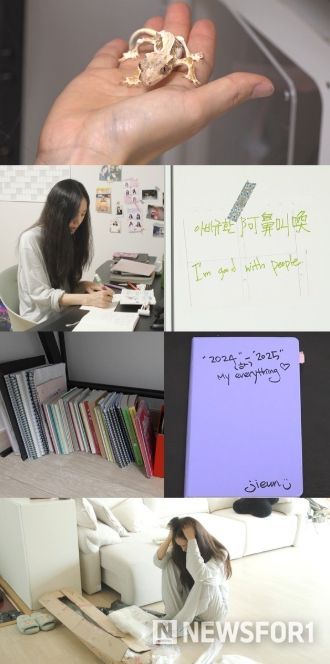 아비규환 阿鼻叫喚
I'm good with people
"2024" - "2025"
My everything♡
jieun
N NEWSFOR1